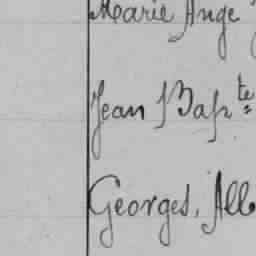 Marie Ange
Jean Bapte
Georges, Alb